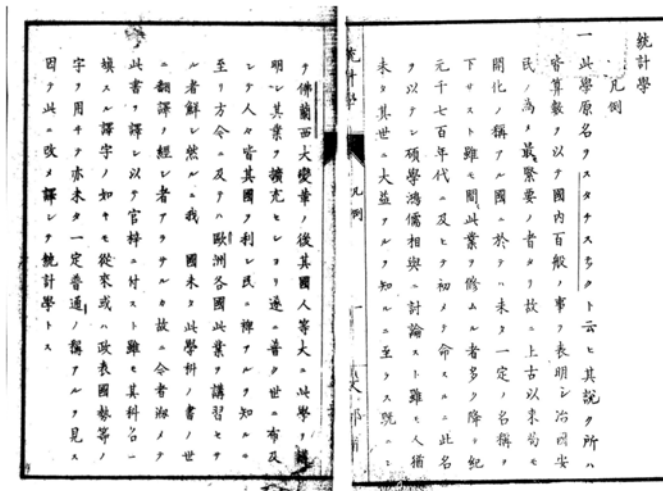 統計學
凡例
一此學原名ヲスタチスチクト云ヒ其説ク所ハ
皆算數ヲ以テ國内百般ノ事ヲ表明シ治國安
民ノ為メ最緊要ノ者タリ故ニ上古以來苟モ
開化ノ稱アル國ニ於テハ未タ一定ノ名稱ヲ
下サスト雖モ間此業ヲ修ムル者多ク降テ紀
元千七百年代ニ及ヒテ初メテ命スルニ此名
ヲ以テシ碩學鴻儒相與ニ討論スト雖モ人猶
未タ其世ニ大益アルヲ知ルニ至ラス既ニシ
統計學
凡例
一
文部省
テ佛蘭西大變革ノ後其國人等大ニ此學ヲ講
明シ其業ヲ擴充セシヨリ遍ニ普ク世ニ布及
シテ人々皆其國ヲ利シ民ニ裨アルヲ知ルニ
至リ方今ニ及テハ歐洲各國此業ヲ講習セサ
ル者鮮シ然ルニ我 國未タ此學科ノ書ノ世
ニ翻譯ヲ經シ者アラサルカ故ニ今者淑メテ
此書ヲ譯シ以テ官梓ニ付スト雖モ其科名ニ
填スル譯字ノ如キモ從來或ハ政表國勢等ノ
字ヲ用キテ亦未タ一定普通ノ稱アルヲ見ス
因テ此ニ改メ譯シテ統計學トス